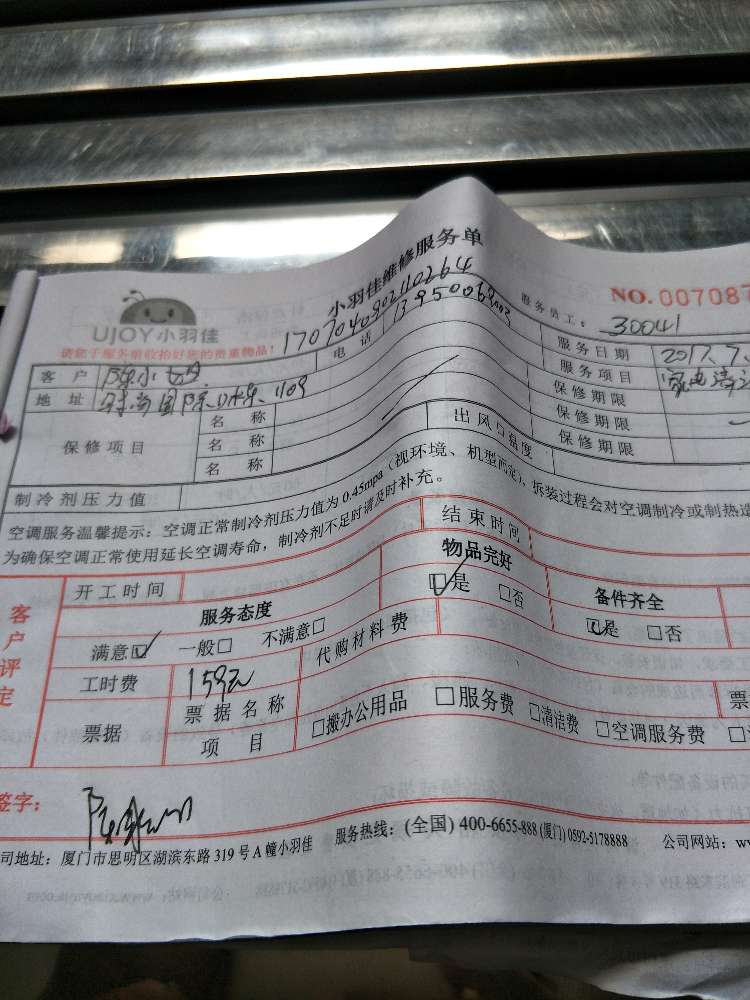 小羽佳维修服务单
NO.007087
UJOY小羽佳
1707040802110264
服务员工： 30041
请您于服务前收拾好您的贵重物品！
电话 13950068
服务日期 2017.7.
客户 陈小
服务项目 家电清
地址 1109
保修期限
保修项目
名称
名称
名称
保修期限
保修期限
出风口温度
制冷剂压力值
空调服务温馨提示：空调正常制冷剂压力值为0.45mpa（视环境、机型而定），拆装过程会对空调制冷或制热造
为确保空调正常使用延长空调寿命，制冷剂不足时请及时补充。
客户评定
开工时间
结束时间
服务态度
物品完好
备件齐全
满意☑ 一般□ 不满意□
☑是 □否
☑是 □否
工时费 159元
代购材料费
票据
票据名称
项目
□搬办公用品 □服务费 □清洁费 □空调服务费
票
签字：
司地址：厦门市思明区湖滨东路319号A幢小羽佳 服务热线：(全国) 400-6655-888 (厦门) 0592-5178888 公司网站：